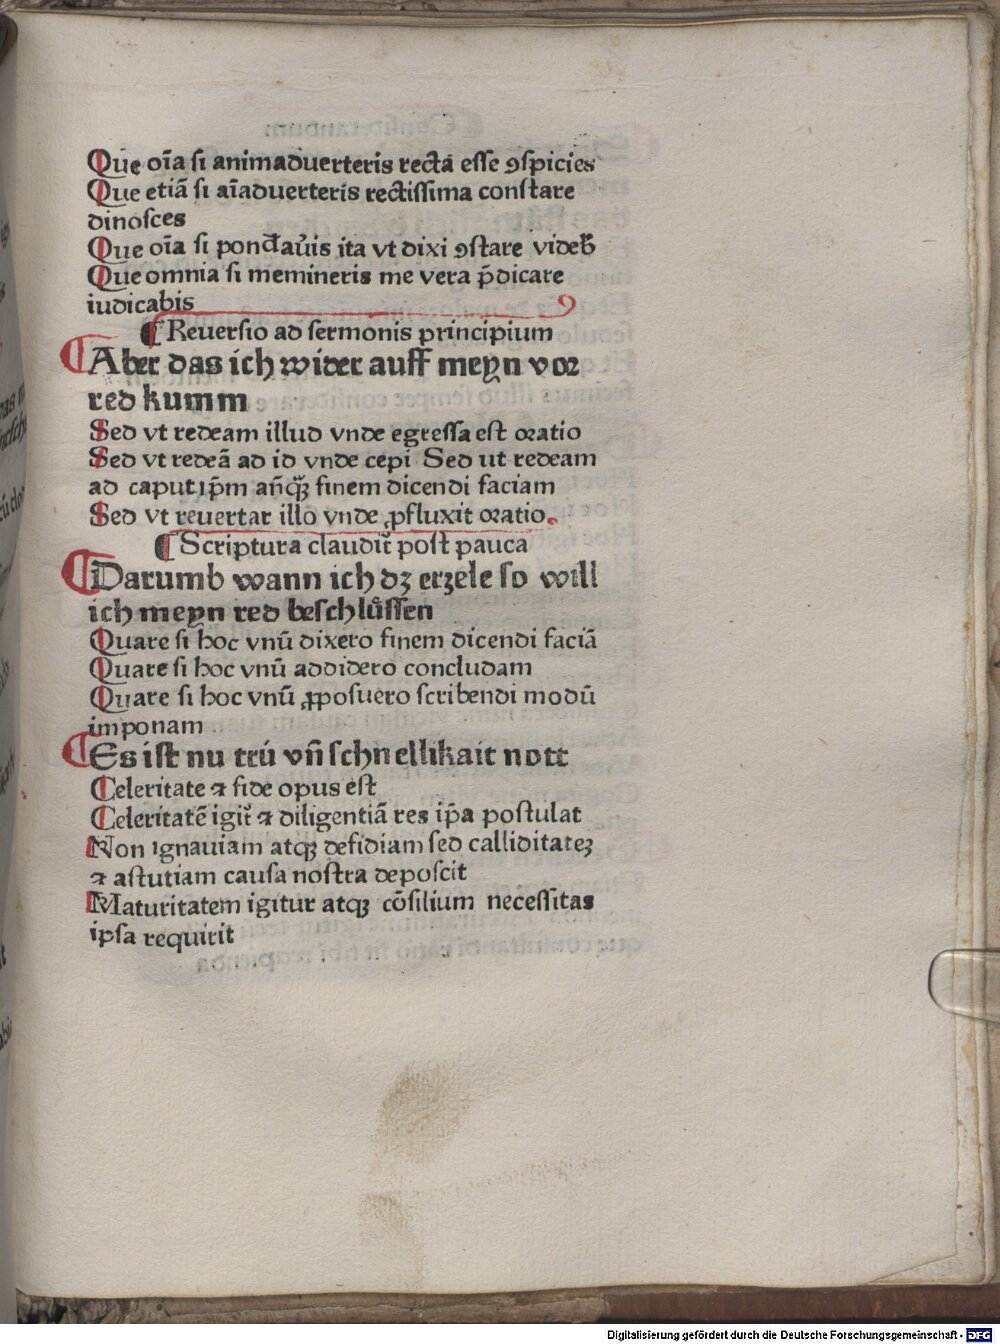 Que oīa si animaduerteris recta esse ꝯspicies
Que etiā si aīaduerteris rectissima constare
dinosces
Que oīa si ponctaūis ita vt dixi ꝯstare videb̄
Que omnia si memineris me vera p̄dicare
iudicabis
¶ Reuersio ad sermonis principium
¶ Aber das ich wider auff meyn vor
red kumm
Sed vt redeam illud vnde egressa est oratio
Sed vt redeā ad id vnde cepi Sed ut redeam
ad caput ip̄m añqꝫ finem dicendi faciam
Sed vt reuertar illo vnde ꝓfluxit oratio.
¶ Scriptura claudit᷑ post pauca
¶ Darumb wann ich dz erzele so will
ich meyn red beschlüssen
Quare si hoc vnū dixero finem dicendi faciā
Quare si hoc vnū addidero concludam
Quare si hoc vnū ꝓposuero scribendi modū
imponam
¶ Es ist nu trú vñ schnellikait nott
Celeritate ⁊ fide opus est
Celeritatē igit᷑ ⁊ diligentiā res ip̄a postulat
Non ignauiam atqꝫ desidiam sed calliditateꝫ
⁊ astutiam causa nostra deposcit
Maturitatem igitur atqꝫ cōsilium necessitas
ipsa requirit
Digitalisierung gefördert durch die Deutsche Forschungsgemeinschaft - DFG